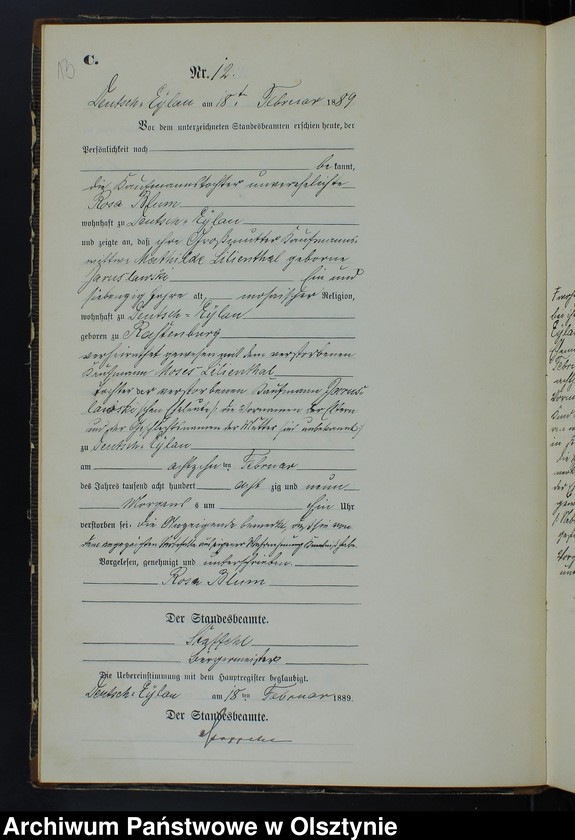 C.
Nr. 12.
Deutsch-Eylau am 18ten Februar 1889
Vor dem unterzeichneten Standesbeamten erschien heute, der
Persönlichkeit nach
be kannt,
die Kaufmannstochter unverehelichte
Rosa Blum
wohnhaft zu Deutsch-Eylau
und zeigte an, daß ihre Großmutter Kaufmanns
wittwe Mathilde Lilienthal geborne
Jaruslawski ein und
siebenzig Jahre alt, mosaischer Religion,
wohnhaft zu Deutsch-Eylau
geboren zu Rastenburg
verheirathet gewesen mit dem verstorbenen
Kaufmann Moses Lilienthal
Tochter der verstorbenen Kaufmann Jarus
lawski'schen Eheleute, die Vornamen der Eltern
und der Geschlechtsnamen der Mutter sind unbekannt
zu Deutsch-Eylau
am achtzehnten Februar
des Jahres tausend acht hundert acht zig und neun
Morgens um ein Uhr
verstorben sei. Die Anzeigende bemerkte, daß sie von
dem angezeigten Sterbefalle aus eigener Wissenschaft
Vorgelesen, genehmigt und unterschrieben.
Rosa Blum
Der Standesbeamte.
Bürgermeister
Die Uebereinstimmung mit dem Hauptregister beglaubigt.
Deutsch-Eylau am 18ten Februar 1889.
Der Standesbeamte.
Archiwum Państwowe w Olsztynie